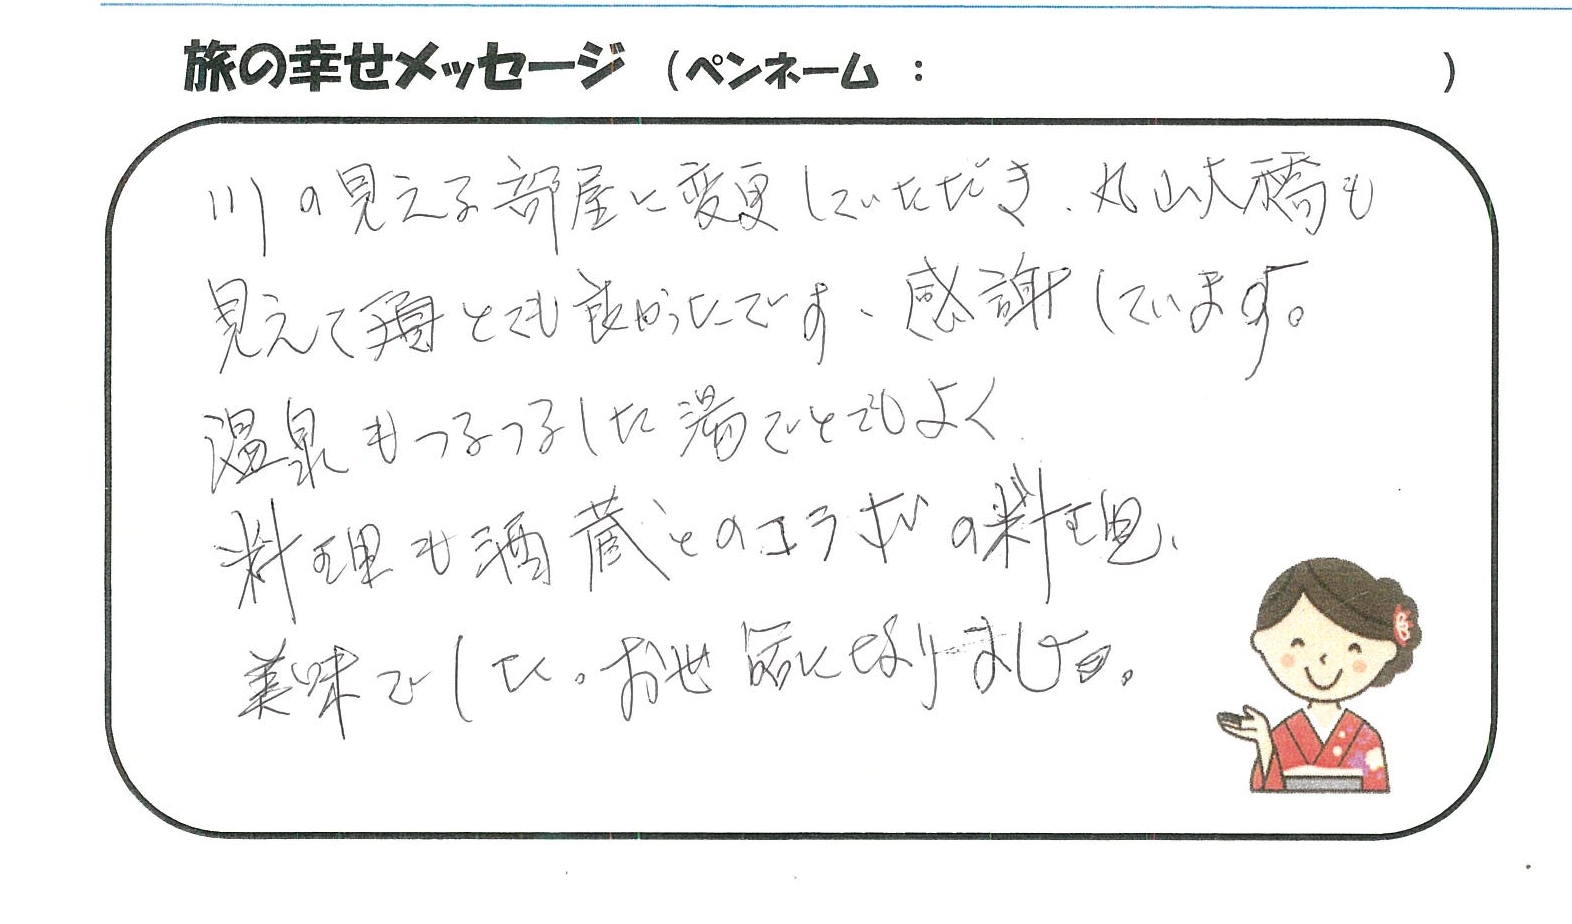 旅の幸せメッセージ (ペンネーム : )
川の見える部屋に変更していただき、丸山大橋も
見えてとても良かったです、感謝しています。
温泉もつるつるした湯でとてもよく
料理も酒蔵とのコラボの料理、
美味でした。お世話になりました。